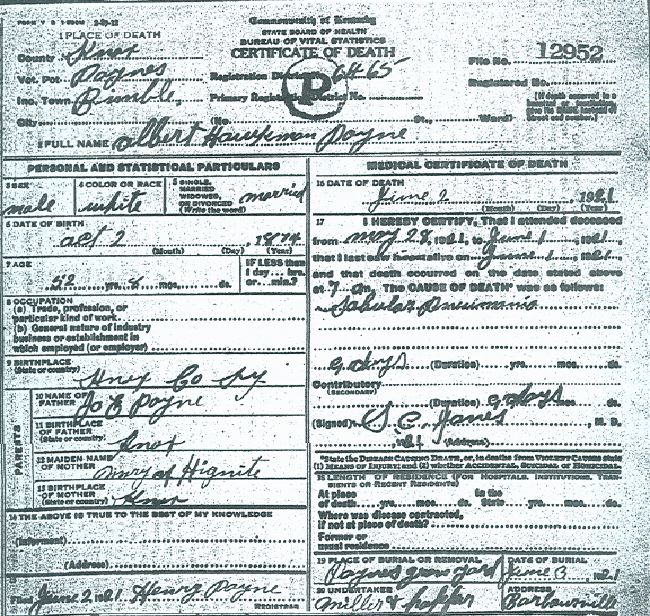 Commonwealth of Kentucky
STATE BOARD OF HEALTH
BUREAU OF VITAL STATISTICS
CERTIFICATE OF DEATH
1 PLACE OF DEATH
County Knox
Vot. Pct. Paynes
Inc. Town Bimble
City
Registration District No. 6465
Primary Registration District No.
(No. St., Ward)
File No. 12952
Registered No.
2 FULL NAME Albert Haukman Payne
PERSONAL AND STATISTICAL PARTICULARS
3 SEX male
4 COLOR OR RACE white
5 SINGLE, MARRIED, WIDOWED, OR DIVORCED (Write the word) married
6 DATE OF BIRTH
Oct 2, 1874
(Month) (Day) (Year)
7 AGE
52 yrs. 8 mos. ds.
IF LESS than 1 day... hrs. or... min.?
8 OCCUPATION
(a) Trade, profession, or
particular kind of work
(b) General nature of industry
business or establishment in
which employed (or employer)
9 BIRTHPLACE
(State or country) Knox Co Ky
PARENTS
10 NAME OF FATHER Jo E Payne
11 BIRTHPLACE OF FATHER
(State or country) Knox
12 MAIDEN NAME OF MOTHER Hignite
13 BIRTHPLACE OF MOTHER
(State or country) Knox
14 THE ABOVE IS TRUE TO THE BEST OF MY KNOWLEDGE
(Informant)
(Address)
Filed June 2 1921 Henry Payne
REGISTRAR
MEDICAL CERTIFICATE OF DEATH
16 DATE OF DEATH
June 2, 1921
(Month) (Day) (Year)
17 I HEREBY CERTIFY, That I attended deceased
from May 28, 1921, to June 1, 1921,
that I last saw h alive on June 1, 1921,
and that death occurred on the date stated above
at 7 a m. The CAUSE OF DEATH was as follows:
Lobular Pneumonia
9 days (Duration) yrs. mos. ds.
Contributory
(SECONDARY)
(Duration) 9 days
(Signed) S C Jones, M. D.
1921 (Address)
*State the DISEASE CAUSING DEATH, or, in deaths from VIOLENT CAUSES state
(1) MEANS OF INJURY; and (2) whether ACCIDENTAL, SUICIDAL or HOMICIDAL
18 LENGTH OF RESIDENCE (FOR HOSPITALS, INSTITUTIONS, TRANSIENTS OR RECENT RESIDENTS)
At place of death yrs. mos. ds. In the State yrs. mos. ds.
Where was disease contracted,
if not at place of death?
Former or
usual residence
19 PLACE OF BURIAL OR REMOVAL
Paynes grave yard
DATE OF BURIAL
June 3, 1921
20 UNDERTAKER
Miller &
ADDRESS
Barbourville